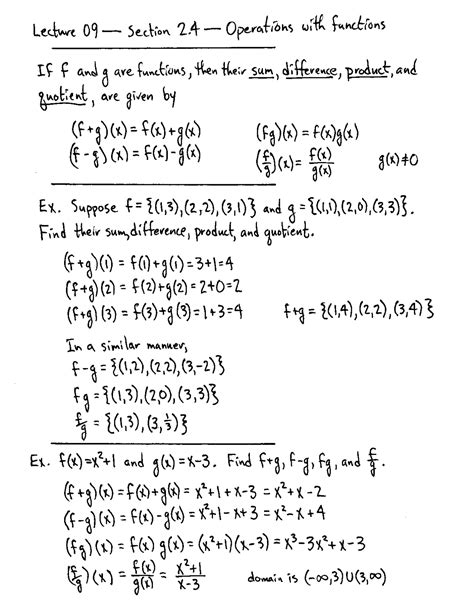 Lecture 09 — Section 2.4 — Operations with functions
If f and g are functions, then their sum, difference, product, and
quotient, are given by
(f+g)(x) = f(x)+g(x) (fg)(x) = f(x)g(x)
(f-g)(x) = f(x)-g(x) (f/g)(x) = f(x)/g(x) g(x)≠0
Ex. Suppose f={(1,3),(2,2),(3,1)} and g={(1,1),(2,0),(3,3)}.
Find their sum, difference, product, and quotient.
(f+g)(1) = f(1)+g(1)=3+1=4
(f+g)(2) = f(2)+g(2)=2+0=2
(f+g)(3) = f(3)+g(3)=1+3=4 f+g = {(1,4),(2,2),(3,4)}
In a similar manner,
f-g = {(1,2),(2,2),(3,-2)}
fg = {(1,3),(2,0),(3,3)}
f/g = {(1,3),(3,1/3)}
Ex. f(x)=x²+1 and g(x)=x-3. Find f+g, f-g, fg, and f/g.
(f+g)(x) = f(x)+g(x) = x²+1+x-3 = x²+x-2
(f-g)(x) = f(x)-g(x) = x²+1-x+3 = x²-x+4
(fg)(x) = f(x) g(x) = (x²+1)(x-3) = x³-3x²+x-3
(f/g)(x) = f(x)/g(x) = x²+1/x-3 domain is (-∞,3)∪(3,∞)